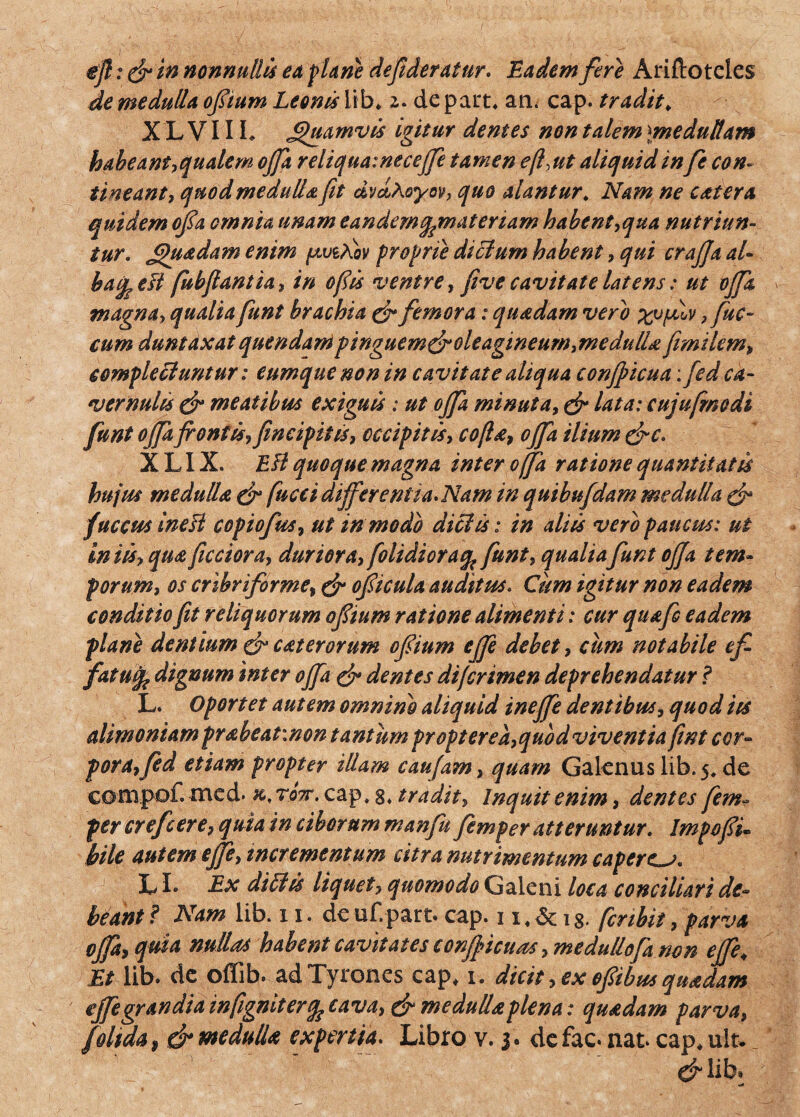 eſt: & in nonnullis ea planè deſideratur. Eadem ferè Ariſtoteles
de medulla oſsium Leonis lib. 2. de part. an. cap. tradit.
XLVIII. Quamvis igitur dentes non talem medullam
habeant, qualem oſſa reliqua: neceſſe tamen eſt, ut aliquid in ſe con-
tineant, quod medullæ ſit ἀνάλογον, quo alantur. Nam ne cætera
quidem oſſa omnia unam eandemq́; materiam habent, qua nutriun-
tur. Quædam enim μυελὸν propriè dictum habent, qui craſſa al-
baq́; eſt ſubſtantia, in oſsis ventre, ſive cavitate latens: ut oſſa
magna, qualia ſunt brachia & femora: quædam verò χυμὸν, ſuc-
cum duntaxat quendam pinguem & oleagineum, medullæ ſimilem,
complectuntur: eumque non in cavitate aliqua conſpicua: ſed ca-
vernulis & meatibus exiguis: ut oſſa minuta, & lata: cujuſmodi
ſunt oſſa frontis, ſincipitis, occipitis, coſtæ, oſſa ilium &c.
XLIX. Eſt quoque magna inter oſſa ratione quantitatis
hujus medullæ & ſucci differentia. Nam in quibuſdam medulla &
ſuccus ineſt copioſus, ut in modò dictis: in aliis verò paucus: ut
in iis, quæ ſicciora, duriora, ſolidioraq́; ſunt, qualia ſunt oſſa tem-
porum, os cribriforme, & oſsicula auditus. Cùm igitur non eadem
conditio ſit reliquorum oſsium ratione alimenti: cur quæſo eadem
planè dentium & cæterorum oſsium eſſe debet, cùm notabile ef-
fatuq́; dignum inter oſſa & dentes diſcrimen deprehendatur?
L. Oportet autem omninò aliquid ineſſe dentibus, quod iis
alimoniam præbeat: non tantùm propterea, quòd viventia ſint cor-
pora, ſed etiam propter illam cauſam, quam Galenus lib. 5. de
compoſ. med. κ. τόπ. cap. 8. tradit, Inquit enim, dentes ſem-
per creſcere, quia in ciborum manſu ſemper atteruntur. Impoſsi-
bile autem eſſe, incrementum citra nutrimentum capere.
LI. Ex dictis liquet, quomodo Galeni loca conciliari de-
beant? Nam lib. 11. de uſ. part. cap. 11. & 18. ſcribit, parva
oſſa, quia nullas habent cavitates conſpicuas, medulloſa non eſſe.
Et lib. de oſſib. ad Tyrones cap. 1. dicit, ex oſsibus quædam
eſſe grandia inſigniterq́; cava, & medullæ plena: quædam parva,
ſolida, & medullæ expertia. Libro v. 3. de fac. nat. cap. ult.
& lib.